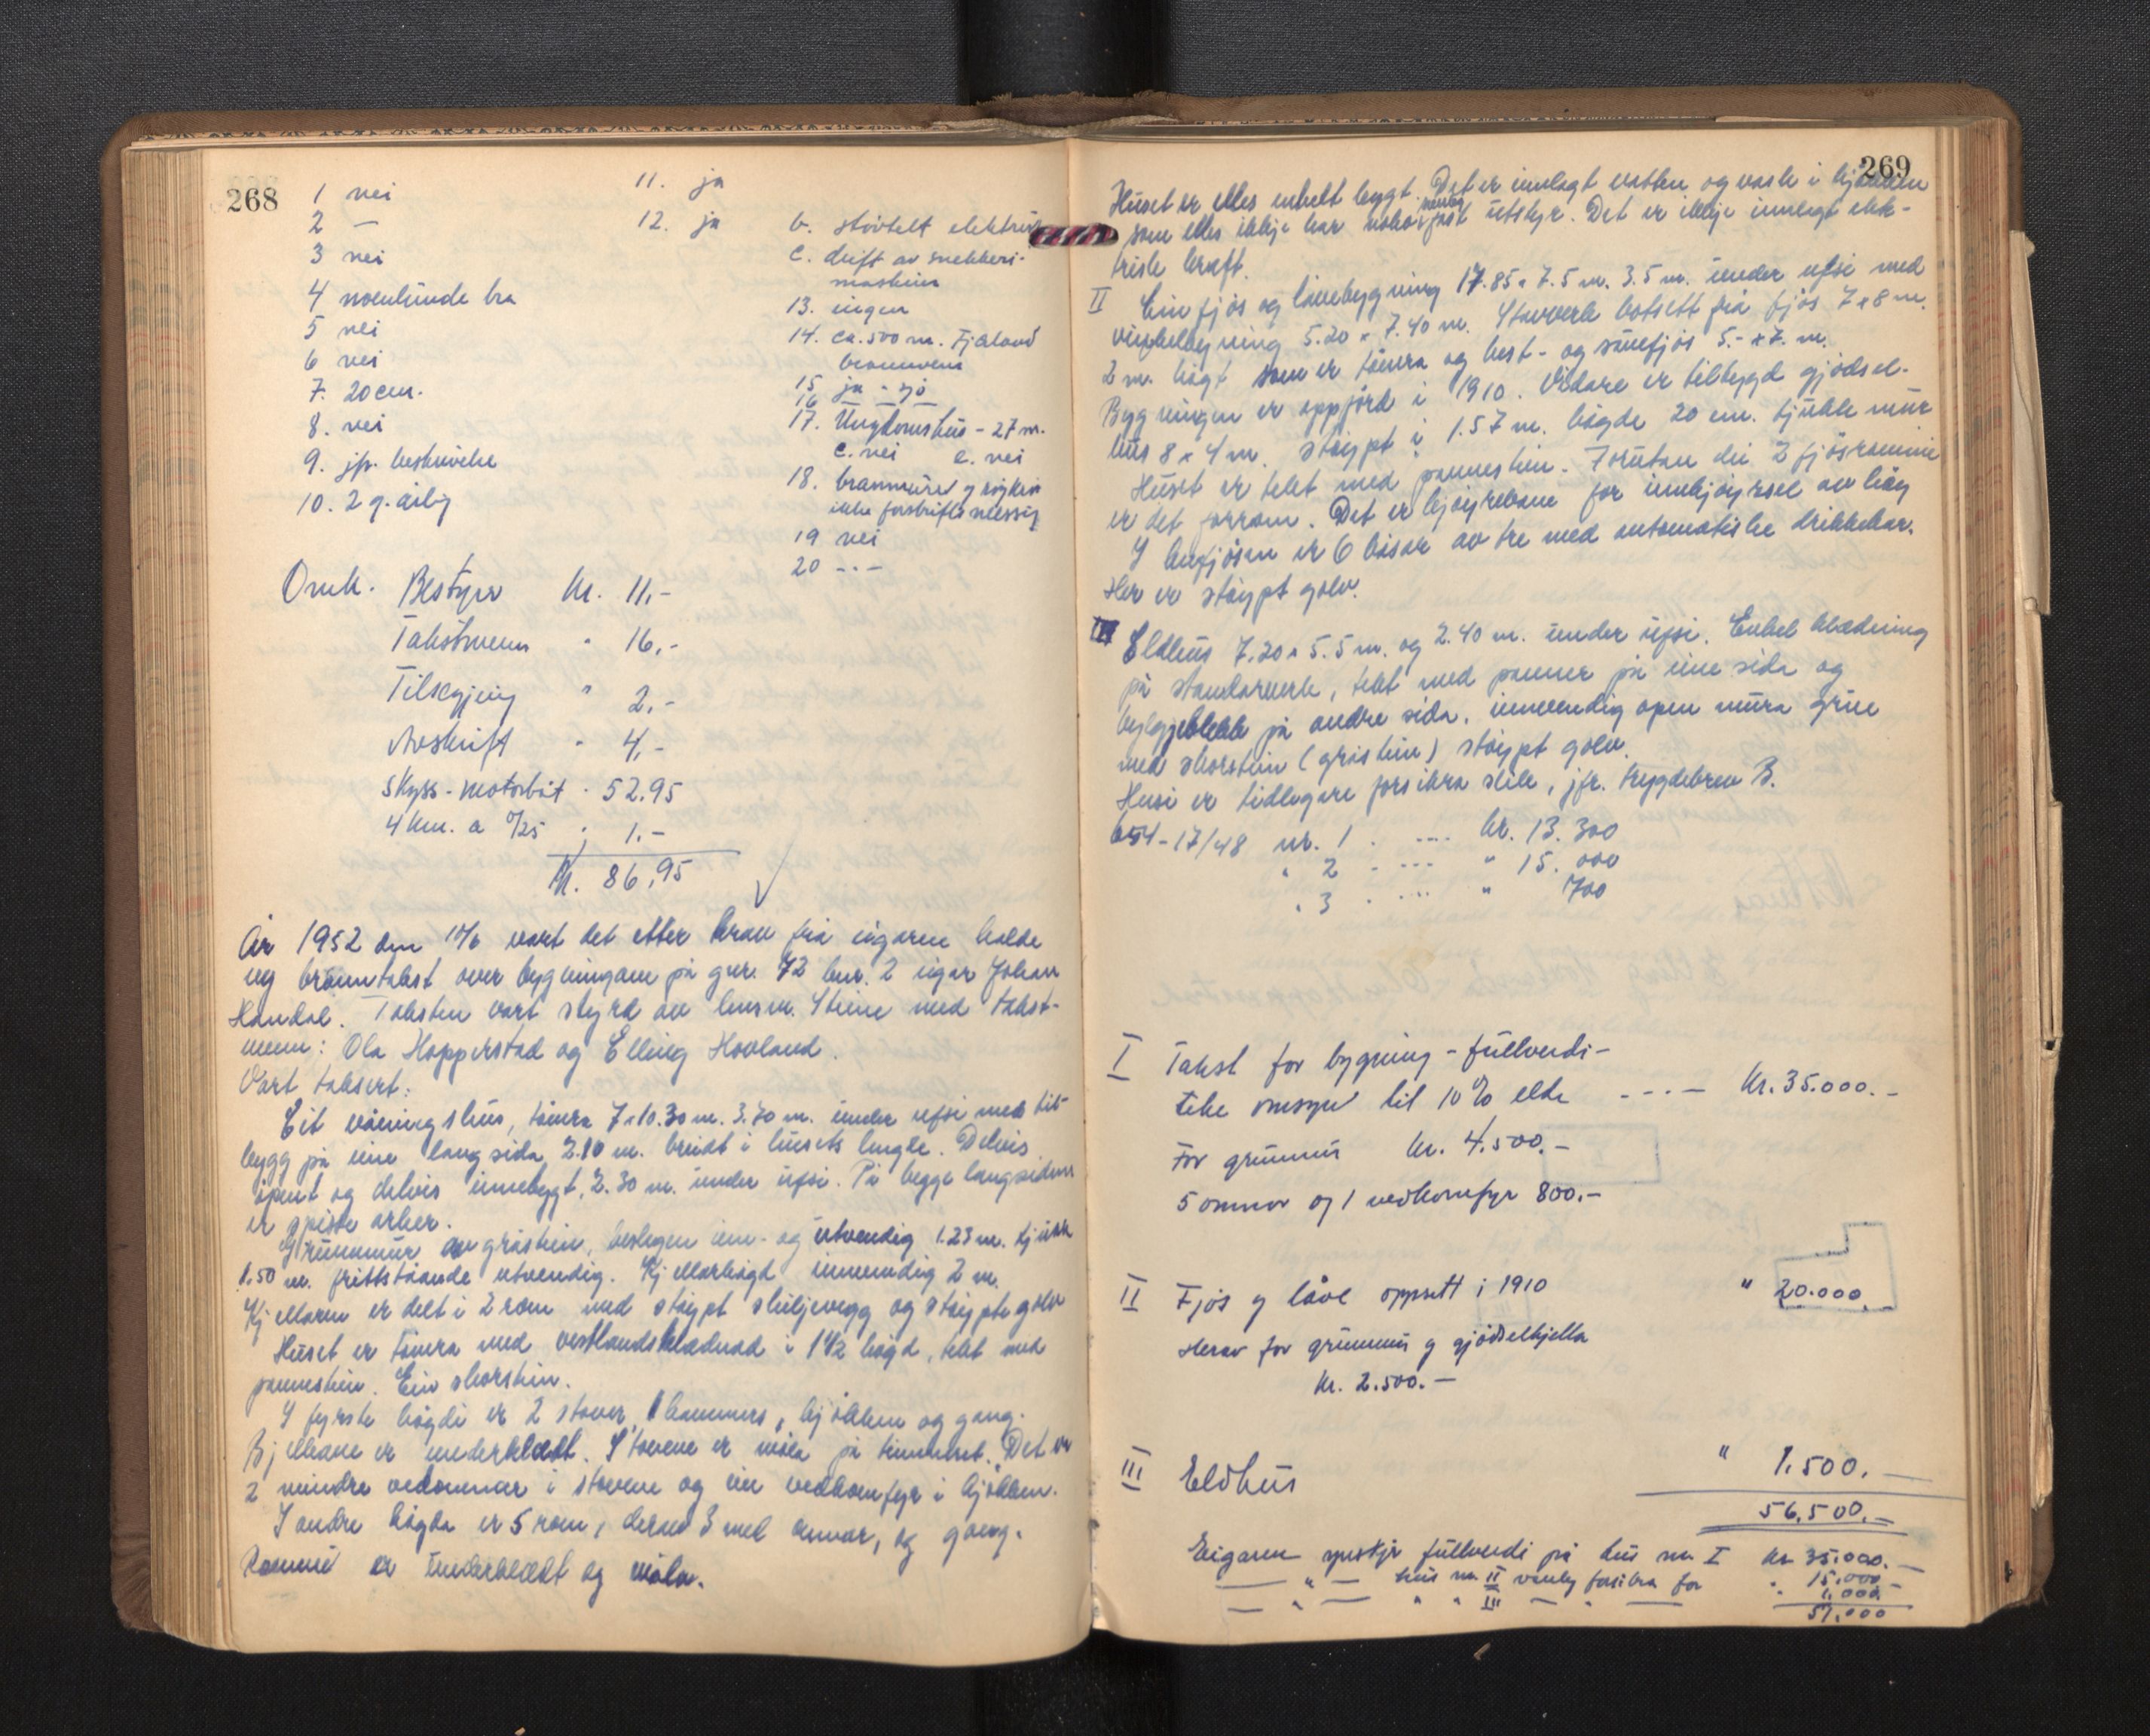 268
1 nei
2 —
3 nei
4 noenlunde bra
5 nei
6 nei
7. 20 cm.
8. nei
9. jfr. beskrivelse
10. 2 g. årlig
11. ja
12. ja b. støvtelt elektrisk
c. drift av snekkeri-
maskiner
13. ingen
14. ca. 500 m. Fjæland
brannvern
15 ja - sjø
16 — —
17. Ungdomshus - 27 m.
c. nei e. nei
18. brannmurer og røykrør
ikke forskriftsmessig
19 nei
20 -.-
Omk. Bestyrer kr. 11.-
Takstmenn " 16.-
Tilsegjeing " 2.-
Avskrift " 4.-
Skyss - motorbåt " 52.95
4 km. a 0/25 " 1.-
Kr. 86.95
År 1952 den 10/6 vart det etter krav frå eigaren halde
ny branntakst over bygningane på gnr. 72 bnr. 2 eigar Johan
Handal. Taksten vart styrd av lensm. Steine med takst-
menn: Ola Hopperstad og Elling Hovland.
Vart taksert:
Eit våningshus, tømra 7 x 10.30 m. 3.70 m. under ufsi med til-
bygg på eine langsida 2.10 m. breidt i husets lengde. Delvis
åpent og delvis innebygt, 2.30 m. under ufsi. På begge langsidene
er opsette arker.
Grunnmur av gråstein, beslegen inn- og utvendig 1.23 m. tjukk
1.50 m. frittståande utvendig. Kjellarhøgd innvendig 2 m.
Kjellaren er delt i 2 rom med støypt skiljevegg og støypte golv
Huset er tømra med vestlandsklednad i 1 1/2 høgd, tekt med
pannestein. Ein skorstein.
I fyrste høgdi er 2 stover, 1 kammers, kjøkken og gang.
Bjelkane er underkledt. Stovene er måla på tømmeret. Det er
2 mindre vedomnar i stovene og ein vedkomfyr i kjøkken.
I andre høgda er 5 rom, derav 3 med omnar, og gang.
Rommi er underkledt og måla.
269
Huset er elles enkelt bygt. Det er innlagt vatten og vask i kjøkken
som elles ikkje har noko særleg fast utstyr. Det er ikkje innlagt elek-
trisk kraft.
II Ein fjøs og løebygning 17.85 x 7.5 m. 3.5 m. under ufsi med
vinkelbygning 5.20 x 7.40 m. Stavverk botsett frå fjøs 7 x 8 m.
2 m. høgt som er tømra og hest- og sauefjøs 5.- x 7. m.
Bygningen er oppførd i 1910. Vidare er tilbygd gjødsel-
hus 8 x 4 m. støypt i 1.57 m. høgde 20 cm. tjukke mur
Huset er tekt med pannestein. Forutan dei 2 fjøsrommi
er det forrom. Det er kjøyrebane for innkjøyrsel av høy
I kufjøsen er 6 båsar av tre med automatiske drikkekar.
Her er støypt golv.
III Eldhus 7.20 x 5.5 m. og 2.40 m. under ufsi. Enkel kledning
på standarverk, tekt med panner på eine sida og
bylgjeblekk på andre sida, innvendig open mura grue
med skorstein (gråstein) støypt golv.
Husi er tidlegare forsikra slik, jfr. trygdebrev B.
654-17/48 nr. 1 . .... kr. 13.300
" 2 - --- " 15.000
" 3 . .... " 700
I Takst for bygning - fullverdi-
ikke omsyn til 10% elde - - - - Kr. 35.000.-
For grunnmur kr. 4.500.-
5 omner og 1 vedkomfyr 800.-
II Fjøs og låve oppsett i 1910 " 20.000.-
Herav for grunnmur og gjødselkjellar
kr. 2.500.-
III Eldhus " 1.500.-
56.500.-
Eigaren ynskjer fullverdi på hus nr. I kr 35.000.-
— " — hus nr. II vanleg forsikra for " 15.000.-
— " — " " III — " — " 1.000.-
51.000